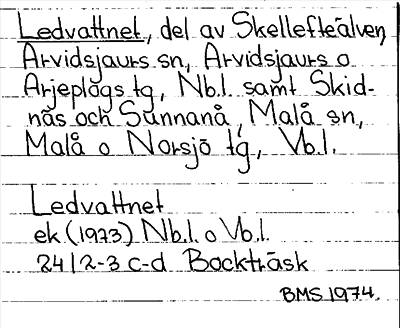 Ledvattnet, del av Skellefteälven,
Arvidsjaurs sn, Arvidsjaurs o
Arjeplogs tg, Nb.l. samt Skid-
näs och Sunnanå, Malå sn,
Malå o Norsjö tg, Vb.l.
Ledvattnet
ek (1973) Nb.l. o Vb.l.
24I 2-3 c-d Bockträsk
BMS 1974.